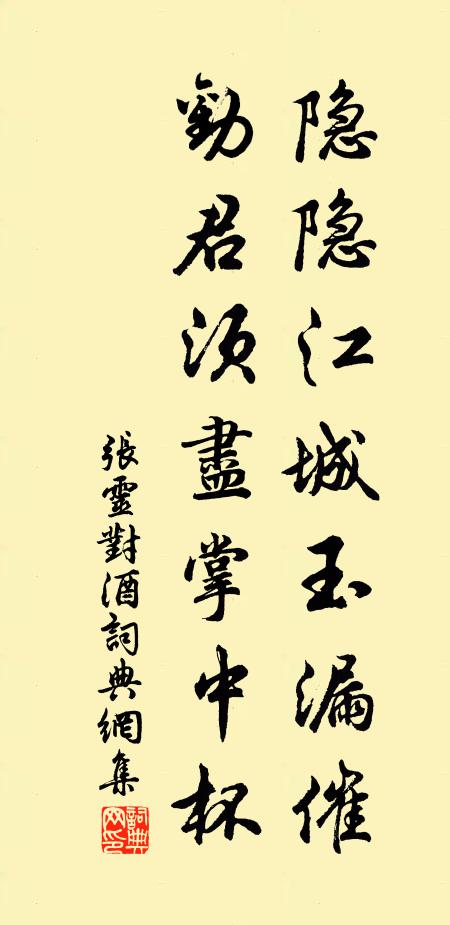 隐隐江城玉漏催
勸君须盡掌中杯
張靈對酒詞典網集
詞典网印